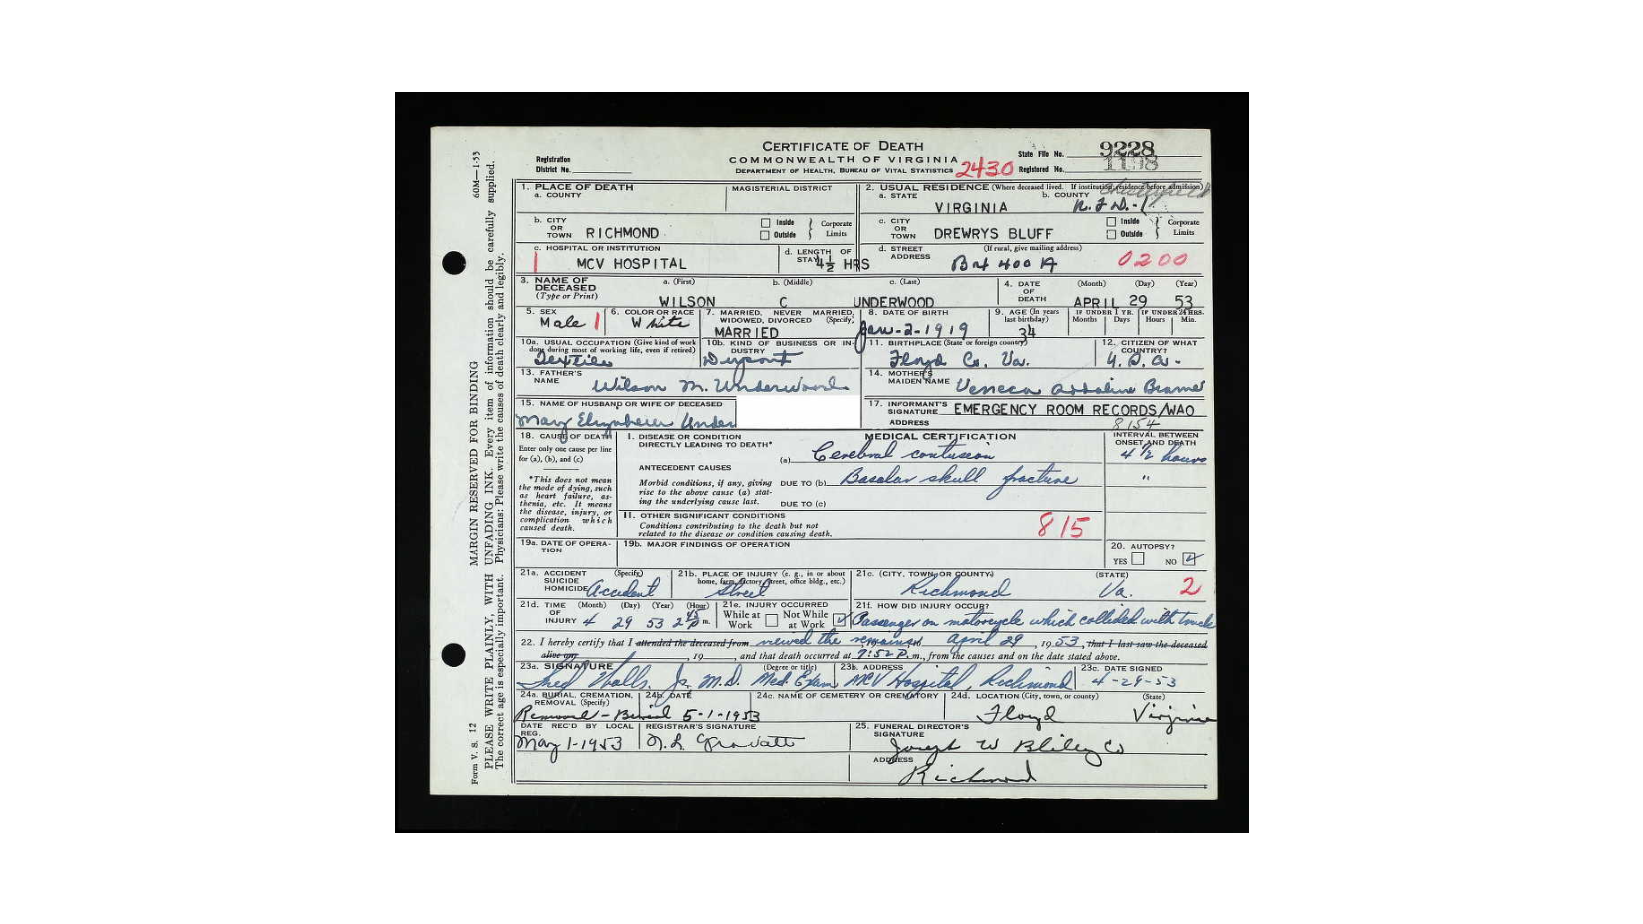 CERTIFICATE OF DEATH
COMMONWEALTH OF VIRGINIA
DEPARTMENT OF HEALTH, BUREAU OF VITAL STATISTICS
2430
Registration District No.
State File No. 9228
Registered No. 1198
60M—1-53
MARGIN RESERVED FOR BINDING
PLEASE WRITE PLAINLY, WITH UNFADING INK. Every item of information should be carefully supplied.
The correct age is especially important. Physicians: Please write the causes of death clearly and legibly.
Form V. S. 12
1. PLACE OF DEATH
a. COUNTY
MAGISTERIAL DISTRICT
2. USUAL RESIDENCE (Where deceased lived. If institution, residence before admission)
a. STATE VIRGINIA
b. COUNTY Chesterfield
R.F.D.-1
b. CITY OR TOWN RICHMOND
Inside Outside Corporate Limits
c. CITY OR TOWN DREWRYS BLUFF
Inside Outside Corporate Limits
c. HOSPITAL OR INSTITUTION
MCV HOSPITAL
d. LENGTH OF STAY 4½ HRS
d. STREET ADDRESS (If rural, give mailing address)
Box 400 A
0200
3. NAME OF DECEASED (Type or Print)
a. (First) WILSON
b. (Middle) C
c. (Last) UNDERWOOD
4. DATE OF DEATH (Month) (Day) (Year)
APRIL 29 53
5. SEX Male 1
6. COLOR OR RACE White
7. MARRIED, NEVER MARRIED, WIDOWED, DIVORCED (Specify)
MARRIED
8. DATE OF BIRTH
Jan-2-1919
9. AGE (In years last birthday) 34
IF UNDER 1 YR. Months Days
IF UNDER 24 HRS. Hours Min.
10a. USUAL OCCUPATION (Give kind of work done during most of working life, even if retired)
Textile
10b. KIND OF BUSINESS OR INDUSTRY
Dupont
11. BIRTHPLACE (State or foreign country)
Floyd Co. Va.
12. CITIZEN OF WHAT COUNTRY?
U.S.A.
13. FATHER'S NAME
Wilson M. Underwood
14. MOTHER'S MAIDEN NAME Veneca Addaline
15. NAME OF HUSBAND OR WIFE OF DECEASED
Mary Elizabeth Under
17. INFORMANT'S SIGNATURE EMERGENCY ROOM RECORDS/WAO
ADDRESS
8154
18. CAUSE OF DEATH
Enter only one cause per line for (a), (b), and (c)
*This does not mean the mode of dying, such as heart failure, asthenia, etc. It means the disease, injury, or complication which caused death.
MEDICAL CERTIFICATION
INTERVAL BETWEEN ONSET AND DEATH
I. DISEASE OR CONDITION DIRECTLY LEADING TO DEATH*
(a) Cerebral contusion
4½ hours
ANTECEDENT CAUSES
Morbid conditions, if any, giving rise to the above cause (a) stating the underlying cause last.
DUE TO (b) Basalar skull fracture
"
DUE TO (c)
II. OTHER SIGNIFICANT CONDITIONS
Conditions contributing to the death but not related to the disease or condition causing death.
815
19a. DATE OF OPERATION
19b. MAJOR FINDINGS OF OPERATION
20. AUTOPSY?
YES NO
21a. ACCIDENT SUICIDE HOMICIDE (Specify)
Accident
21b. PLACE OF INJURY (e. g., in or about home, farm, factory, street, office bldg., etc.)
Street
21c. (CITY, TOWN, OR COUNTY) (STATE)
Richmond Va. 2
21d. TIME OF INJURY (Month) (Day) (Year) (Hour)
4 29 53 m.
21e. INJURY OCCURRED
While at Work Not While at Work
21f. HOW DID INJURY OCCUR?
Passenger on motorcycle which collided with truck
22. I hereby certify that I attended the deceased from viewed the remains April 29, 1953, that I last saw the deceased
alive on , 19 , and that death occurred at 7:52 P. m., from the causes and on the date stated above.
23a. SIGNATURE (Degree or title)
Jr. M.D. Med. Exam
23b. ADDRESS
MCV Hospital, Richmond
23c. DATE SIGNED
4-29-53
24a. BURIAL, CREMATION, REMOVAL (Specify)
Removal-Burial
24b. DATE
5-1-1953
24c. NAME OF CEMETERY OR CREMATORY
24d. LOCATION (City, town, or county) (State)
Floyd Virginia
DATE REC'D BY LOCAL REG.
May 1-1953
REGISTRAR'S SIGNATURE
25. FUNERAL DIRECTOR'S SIGNATURE
Joseph W Bliley Co
ADDRESS
Richmond